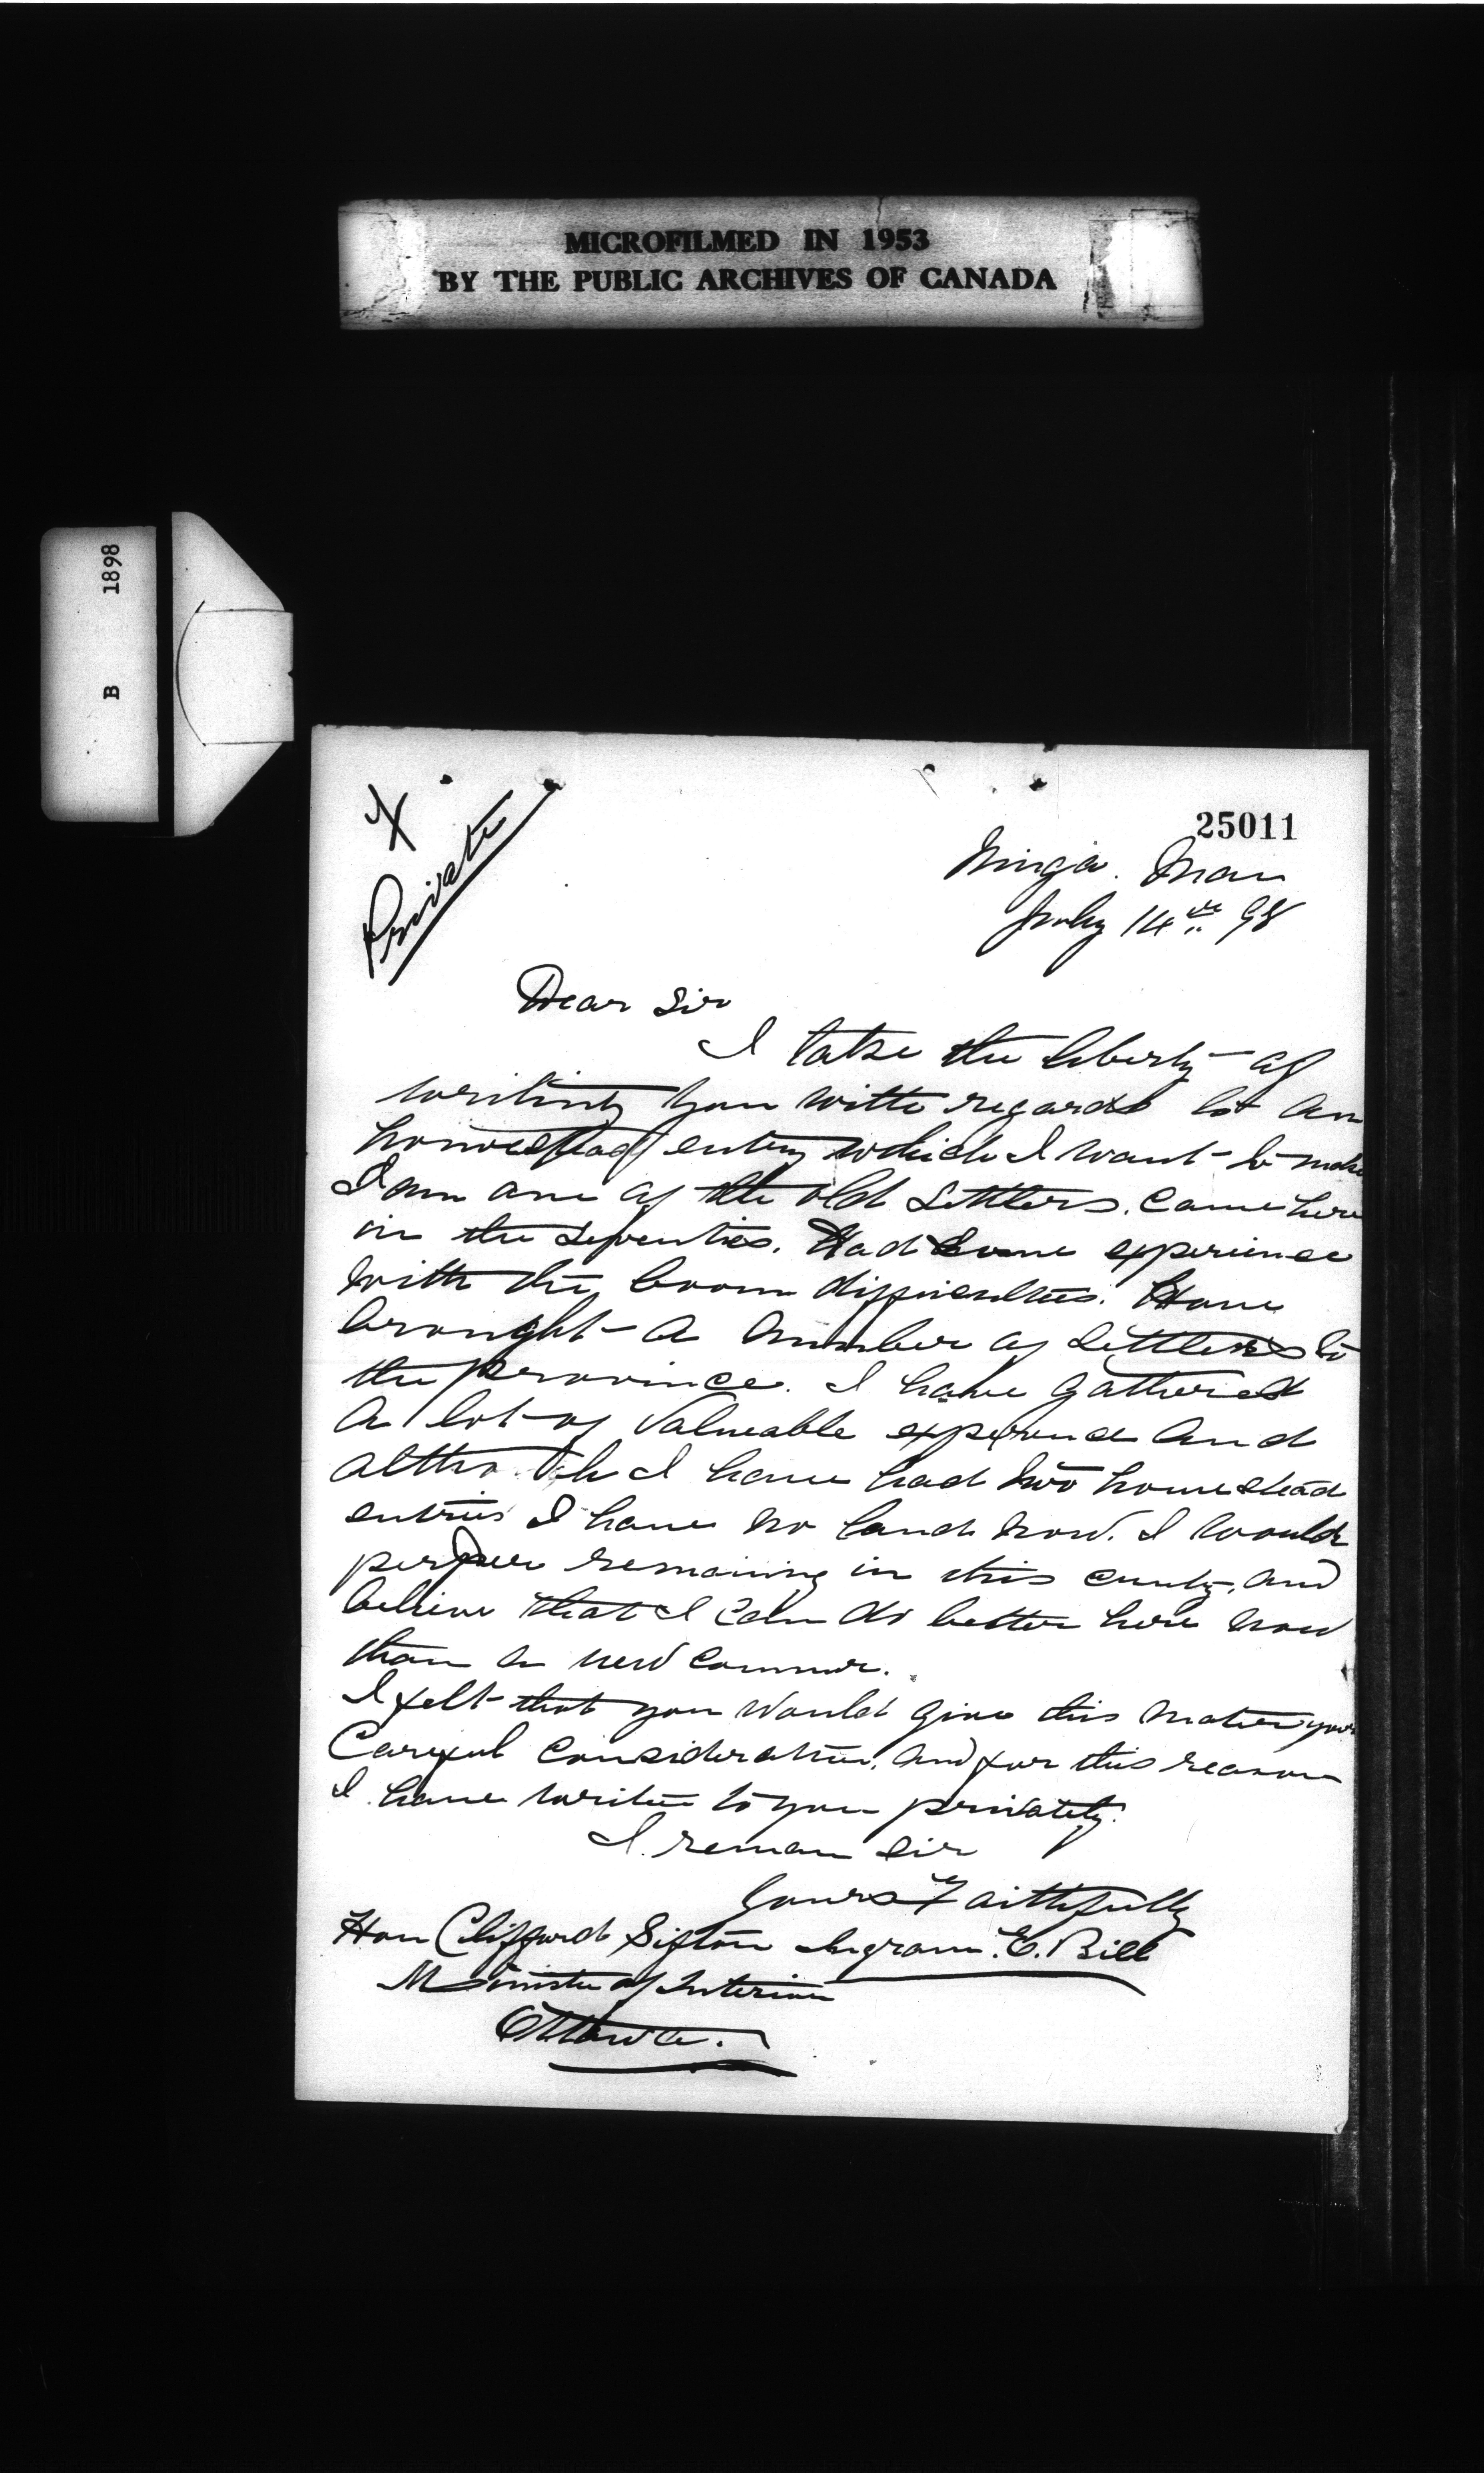 MICROFILMED IN 1953
BY THE PUBLIC ARCHIVES OF CANADA
B 1898
X
Private
25011
Ninga. Man
July 14th 98
Dear Sir
I take the liberty of
writing you with regards to an
homestead entry which I want to make
I am one of the old Settlers. Came here
in the Seventies. Had Some experience
with the boom difficulties. Have
brought a number of Settlers to
the province. I have gathered
a lot of valueable experience and
altho I have had two homestead
entries I have no land now. I would
perfer remaining in this cunty, and
believe that I can do better here now
than a new commer.
I felt that you would give this matter your
Careful consideration, and for this reason
I have writen to you privately.
I reman Sir
Yours Faithfully
Hon Clifford Sifton Ingram. E. Bill
Minister of Interior
Ottawa.